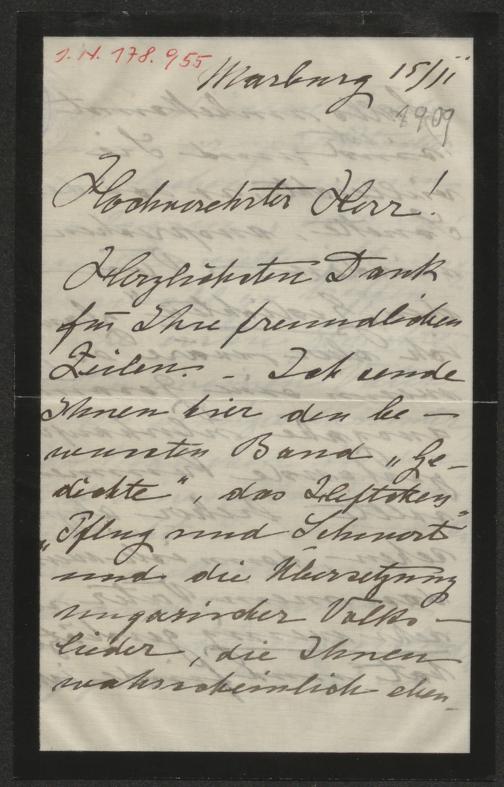 J. N. 178.955
Marburg 15/II
1909
Hochverehrter Herr!
Herzlichsten Dank
für Ihre freundlichen
Zeilen. – Ich sende
Ihnen hier den be-
wussten Band „Ge-
dichte", das Heftchen
„Pflug und Schwert"
und die Übersetzung
ungarischer Volks-
lieder, die Ihnen
wahrscheinlich eben-